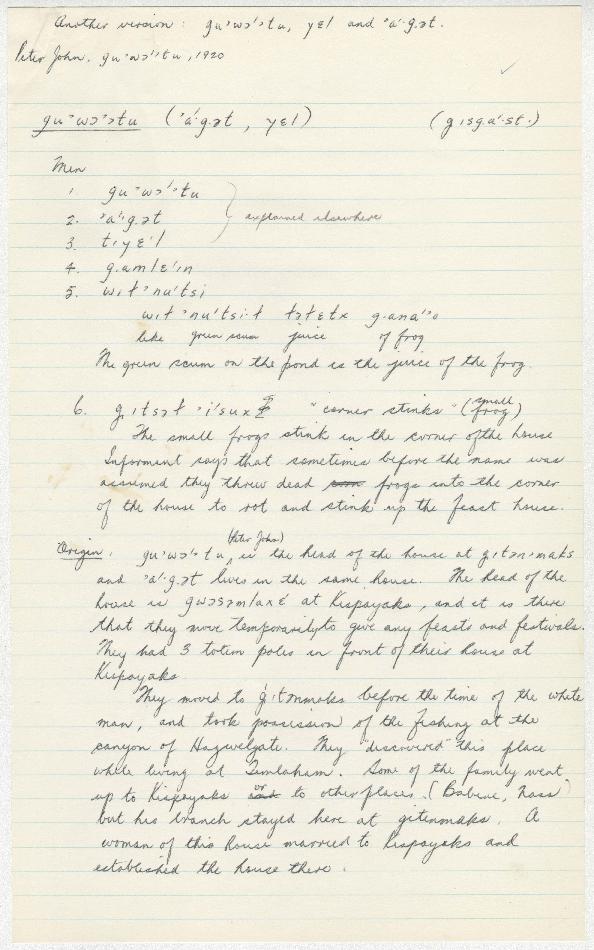 Another version: gu'wɔ''tu, yɛl and 'a'·g.ət.
Peter John. gu'wɔ''tu, 1920
gu'wɔ''tu ('á·g.ət, yɛl) (gɪsga'·st·)
Men
1. gu'wɔ''tu
2. 'a'·g.ət } explained elsewhere
3. tɪyɛ'l
4. g.amlɛ'ɪn
5. wɪt'nu'tsi
wɪt'nu'tsi·t tətɛtx g·ana''o
like green scum juice of frog
The green scum on the pond is the juice of the frog.
6. gɪtsət 'ɪ'sux "corner stinks" (small frog)
The small frogs stink in the corner of the house
Informant says that sometimes before the name was
assumed they threw dead frogs into the corner
of the house to rot and stink up the feast house.
Origin: gu'wɔ''tu (Peter John) is the head of the house at gɪtən'maks
and 'a'·g.ət lives in the same house. The head of the
house is gwəsəmlaxɛ' at Kispayaks, and it is there
that they move temporarily to give any feasts and festivals.
They had 3 totem poles in front of their house at
Kispayaks
They moved to gɪtnmaks before the time of the white
man, and took possession of the fishing at the
canyon of Hagwelgate. They "discovered" this place
while living at Temlaham. Some of the family went
up to Kispayaks or to other places. (Babine, Nass)
but his branch stayed here at gitenmaks. A
woman of this house married to Kispayaks and
established the house there.